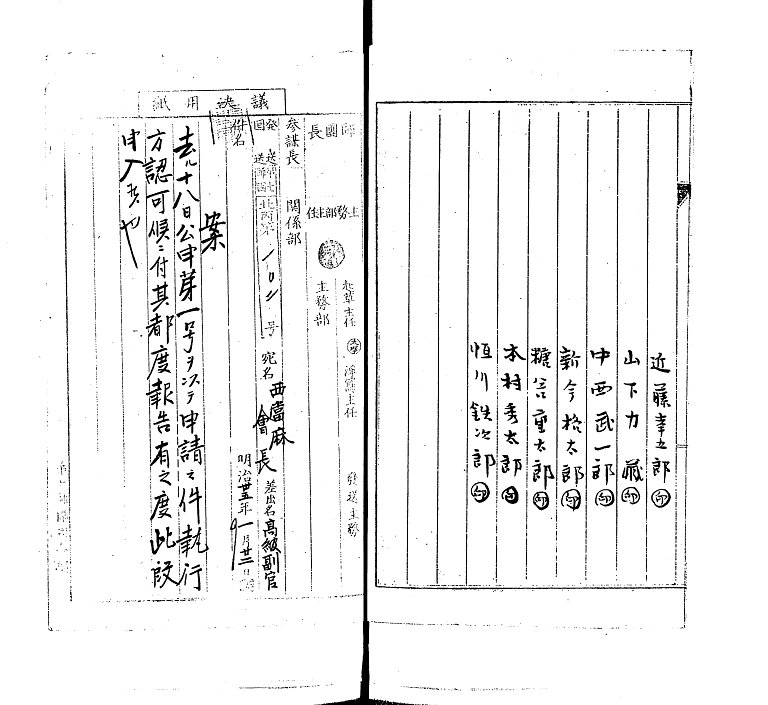 近藤幸五郎 印
山下力蔵 印
中西武一郎 印
新今格太郎 印
糖谷重太郎 印
本村秀太郎 印
恒川鉄次郎 印
議決用紙
師団長
主務部主任
起案主任
浄写主任
発送主務
主務部
参謀長
関係部
号
宛名
西當麻
會長
差出名
高級副官
件名
明治廿五年一月廿二日
案
去ル十八日公申第一号ヲ以テ申請之件執行
方認可候ニ付其都度報告有之度此段
申入候也